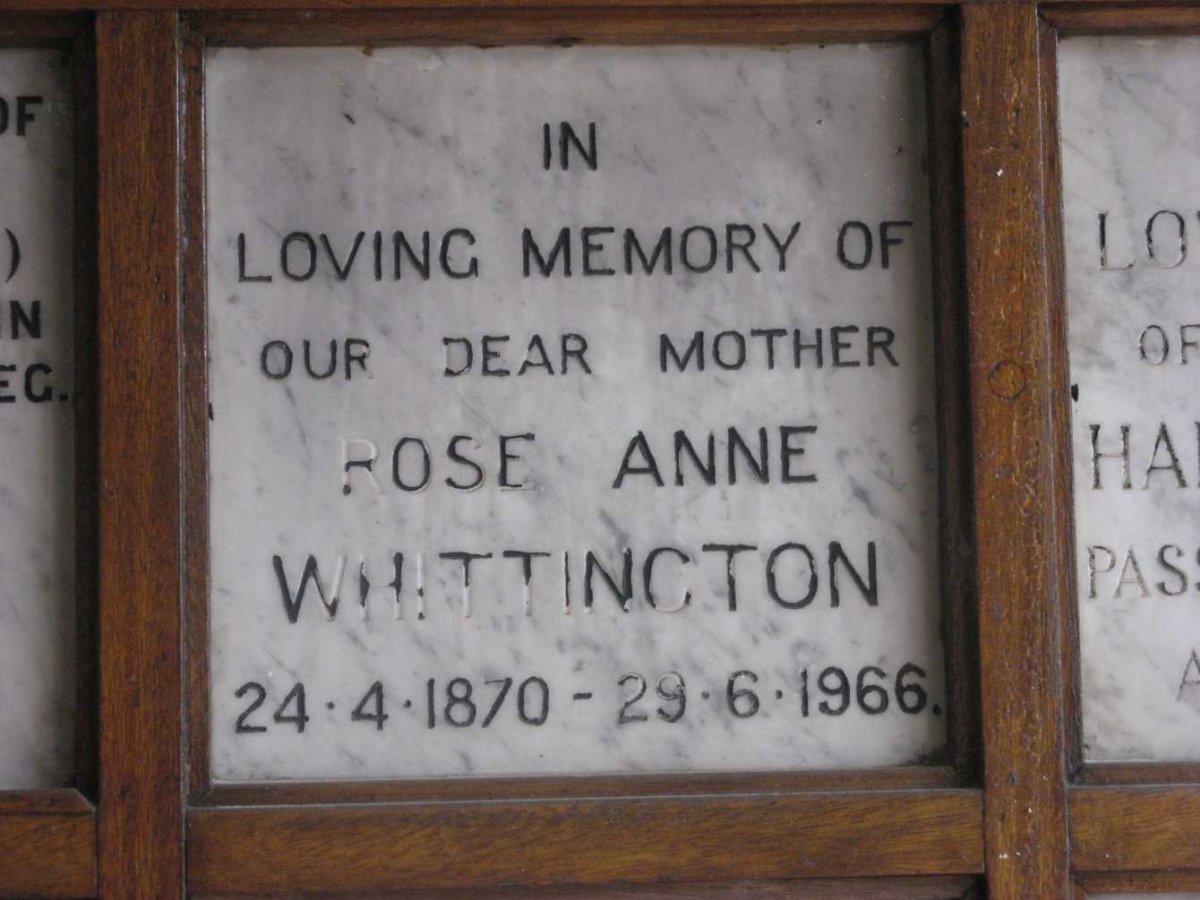 IN
LOVING MEMORY OF
OUR DEAR MOTHER
ROSE ANNE
WHITTINGTON
24·4·1870 - 29·6·1966.
OF
)
IN
EG.
LO
OF
HA
PASS
A